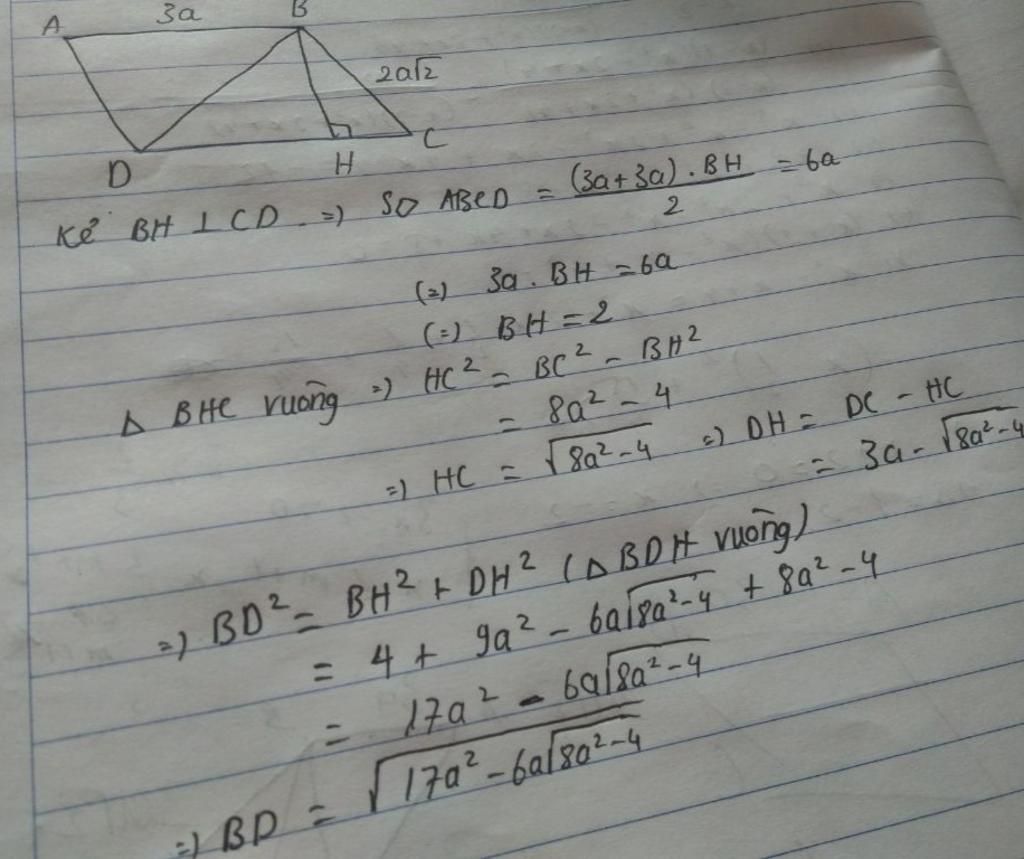 A 3a B
2a√2
D H C
Kẻ BH ⊥ CD => SD ABCD = (3a+3a) . BH / 2 = 6a
(=) 3a . BH = 6a
(=) BH = 2
Δ BHC vuông => HC² = BC² - BH²
= 8a² - 4
=> HC = √(8a²-4) => DH = DC - HC
= 3a - √(8a²-4)
=> BD² = BH² + DH² (Δ BDH vuông)
= 4 + 9a² - 6a√(8a²-4) + 8a² - 4
= 17a² - 6a√(8a²-4)
=> BD = √(17a² - 6a√(8a²-4))